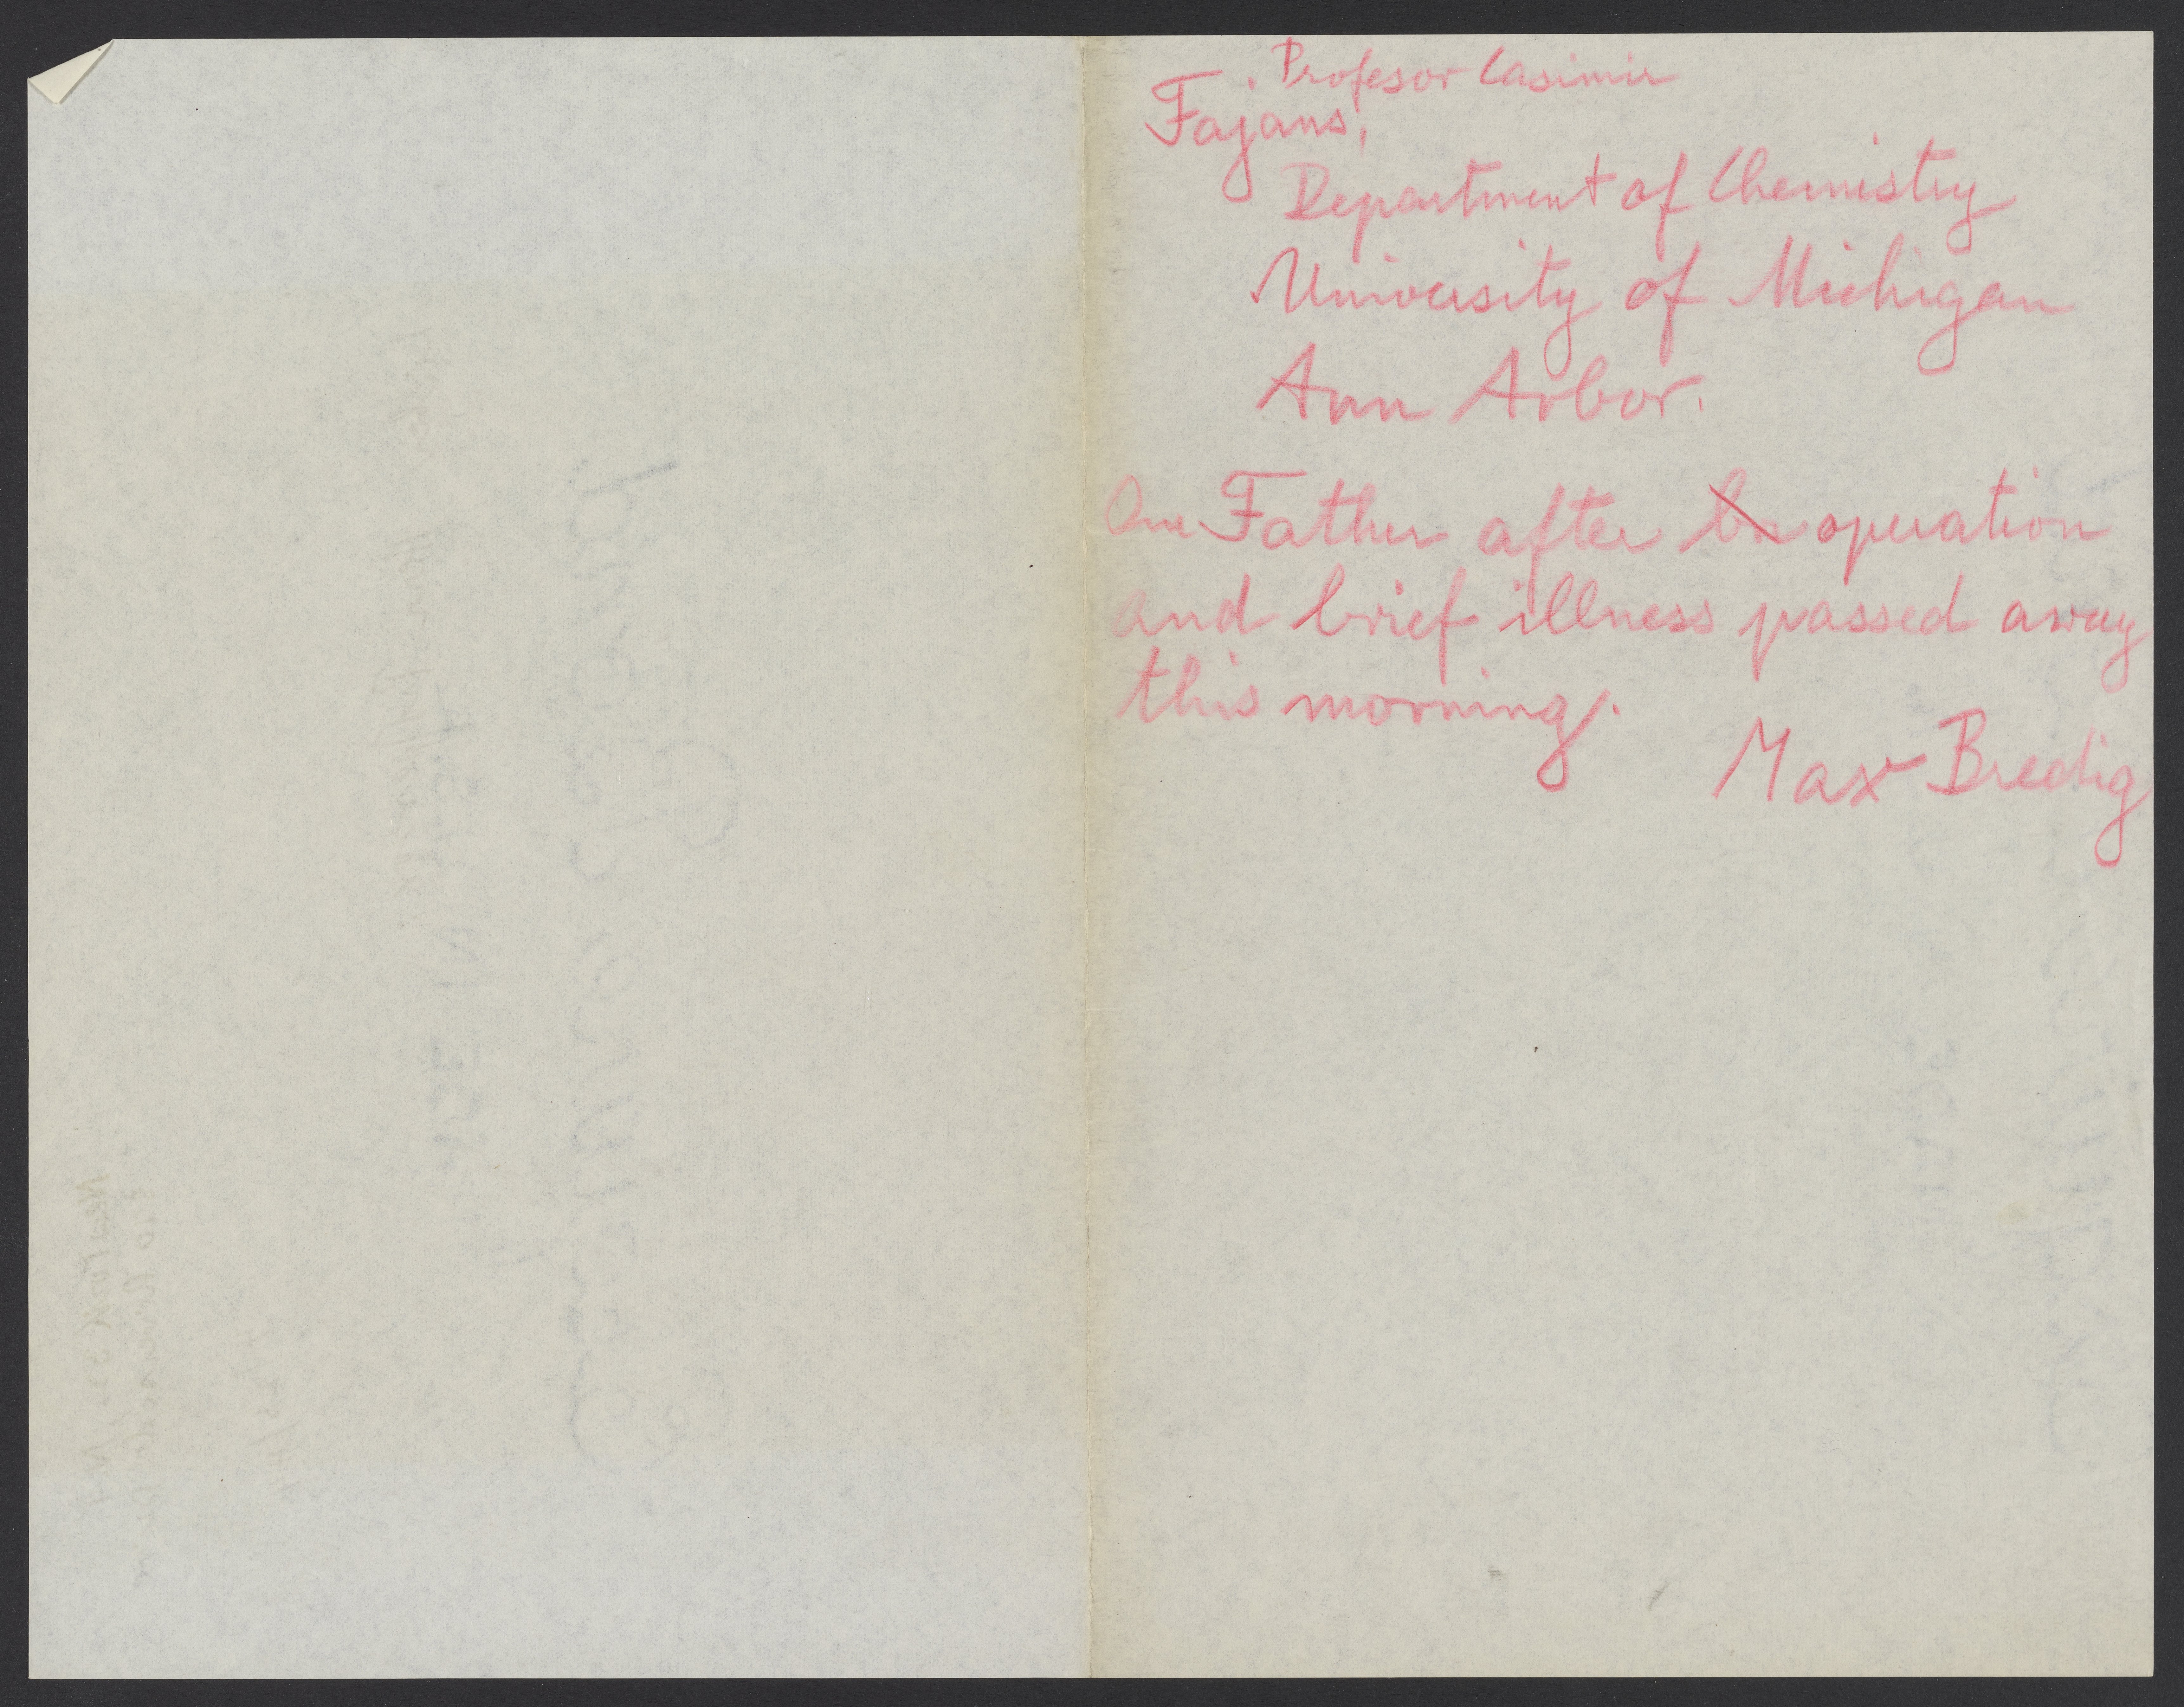 Profesor Casimir
Fajans,
Department of Chemistry
University of Michigan
Ann Arbor.
Our Father after operation
and brief illness passed away
this morning.
Max Bredig